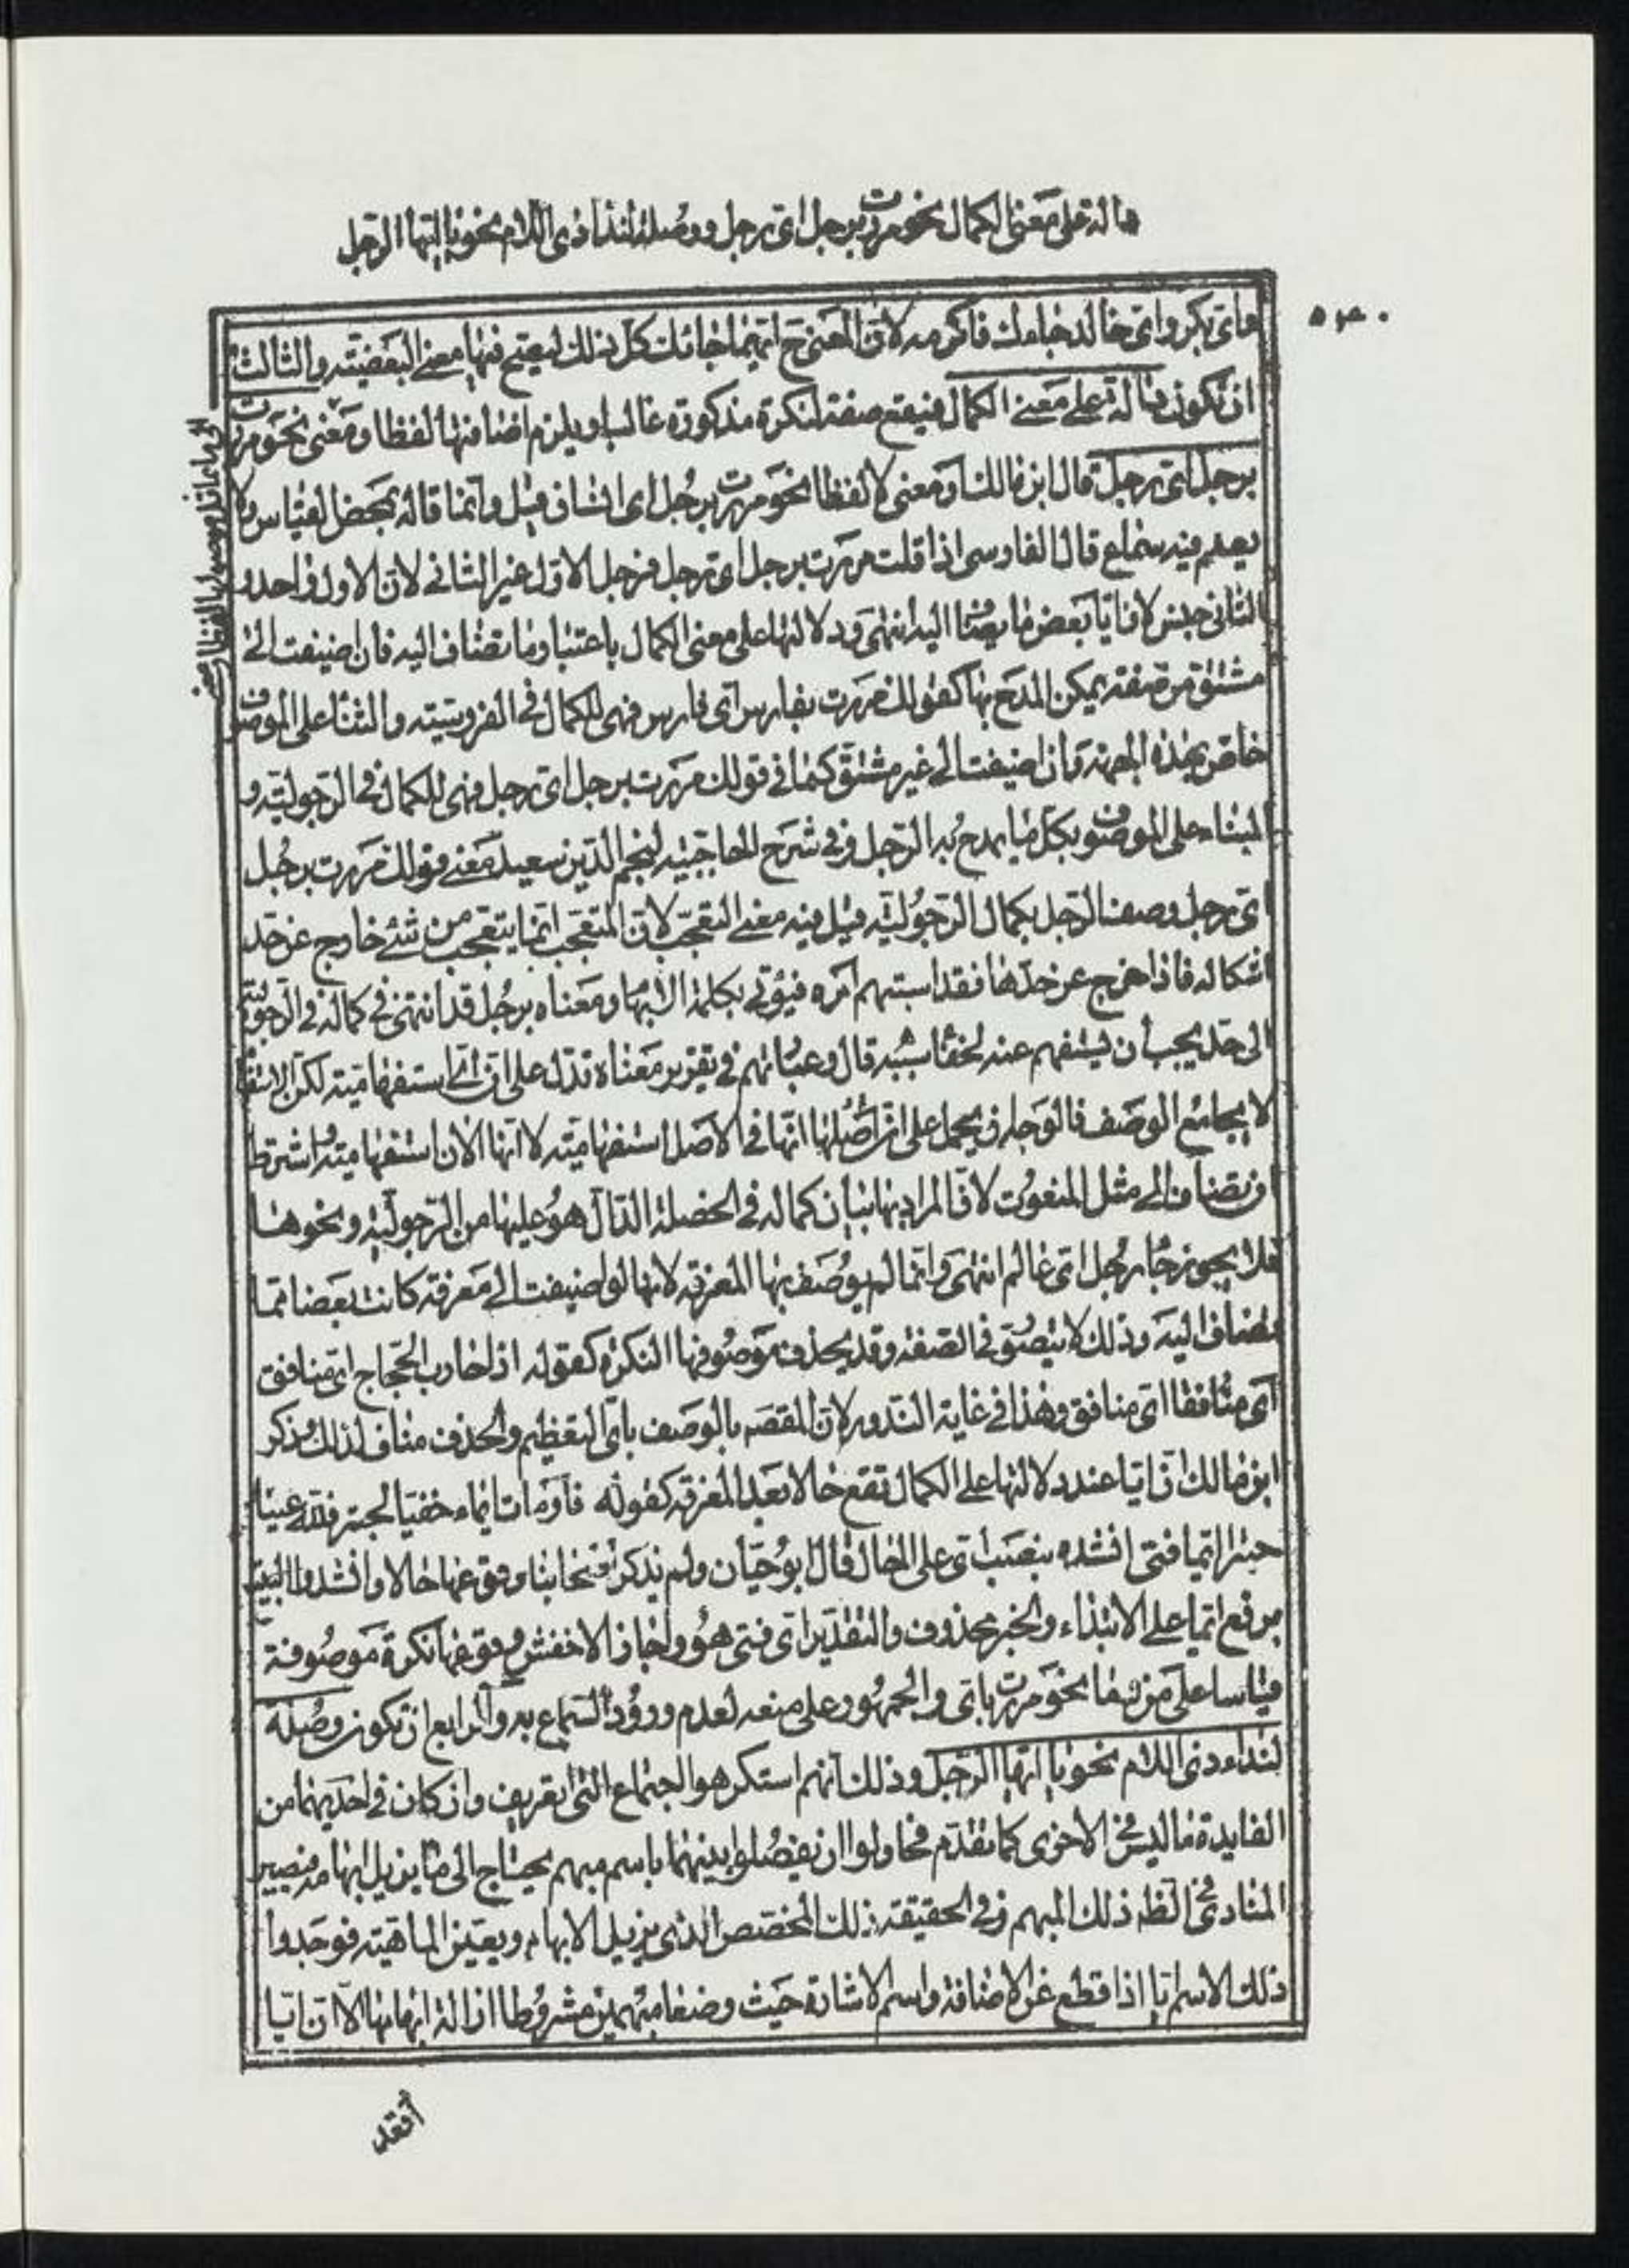 دالة على معنى الكمال نحو مررت برجل اى رجل ووصلة لنداء ذى اللام نحو يا ايها الرجل
واى بكر واى خالد جاءك فاكرمه لان المعنى ح ايهما جائك كل ذلك ليصح فيها معنى البعضية والثالث
ان تكون دالة على معنى الكمال فيقع صفة لنكرة مذكورة غالبا ويلزم اضافتها لفظا ومعنى نحو مررت
برجل اى رجل قال ابن مالك او معنى لا لفظا نحو مررت برجل اى انسان قيل وانما قاله بمحض القياس ولا
يعلم فيه سماع قال الفارسى اذا قلت مررت برجل اى رجل فرجل الاول غير الثانى لان الاول واحد و
الثانى جنس لان ايا بعض ما يضاف اليه انتهى ودلالتها على معنى الكمال باعتبار ما تضاف اليه فان اضيفت الى
مشتق من صفة يمكن المدح بها كقولك مررت بفارس اى فارس فهى للكمال فى الفروسية والثناء على الموصوف
خاص بهذه الجهة وان اضيفت الى غير مشتق كما فى قولك مررت برجل اى رجل فهى للكمال فى الرجولية و
الثناء على الموصوف بكل ما يمدح به الرجل وفى شرح الحاجبية لنجم الدين سعيد معنى قولك مررت برجل
اى رجل وصف الرجل بكمال الرجولية قيل فيه معنى التعجب لان المتعجب انما يتعجب من شئ خارج عن حد
اشكاله فاذا خرج عن حدها فقد استبهم امره فيؤتى بكلمة الابهام ومعناه برجل قد انتهى فى كماله فى الرجولية
الى حد يجب ان يستفهم عنه لخفاء سببه قال وعباراتهم فى تقرير معناه تدل على ان اى استفهامية لكن الاستفهام
لا يجامع الوصف فالوجه ان يحمل على ان اصلها انها فى الاصل استفهامية لا انها الان استفهامية واشترط
ان تضاف الى مثل المنعوت لان المراد بها بيان كماله فى الخصلة الدال هو عليها من الرجولية ونحوها
فلا يجوز جاء رجل اى عالم انتهى وانما لم يوصف بها المعرفة لانها لو اضيفت الى معرفة كانت بعضا مما
تضاف اليه وذلك لا يتصور فى الصفة وقد يحذف موصوفها النكرة كقوله اذا حارب الحجاج اى منافق
اى منافقا اى منافق وهذا فى غاية الندور لان المقصود بالوصف باى التعظيم والحذف مناف لذلك وذكر
ابن مالك ان ايا عند دلالتها على الكمال تقع حالا بعد المعرفة كقوله فاومات ايماء خفيا لحبتر فلله عينا
حبتر ايما فتى انشده بنصب اى على الحال قال ابو حيان ولم يذكر اصحابنا وقوعها حالا وانشدوا البيت
برفع ايما على الابتداء والخبر محذوف والتقدير اى فتى هو واجاز الاخفش وقوعها نكرة موصوفة
قياسا على من وما نحو مررت باى والجمهور على منعه لعدم ورود السماع به والرابع ان تكون وصلة
لنداء ذى اللام نحو يا ايها الرجل وذلك انهم استكرهوا اجتماع التى تعريف وان كان فى احديهما من
الفايدة ما ليس فى الاخرى كما تقدم فحاولوا ان يفصلوا بينهما باسم مبهم يحتاج الى ما يزيل ابهامه فيصير
المنادى فى الظ ذلك المبهم وفى الحقيقة ذلك المخصص الذى يزيل الابهام ويعين الماهية فوجدوا
ذلك الاسم ايا اذا قطع عن الاضافة واسم الاشارة حيث وضعا مبهمين مشروطا ازالة ابهامهما الا ان ايا